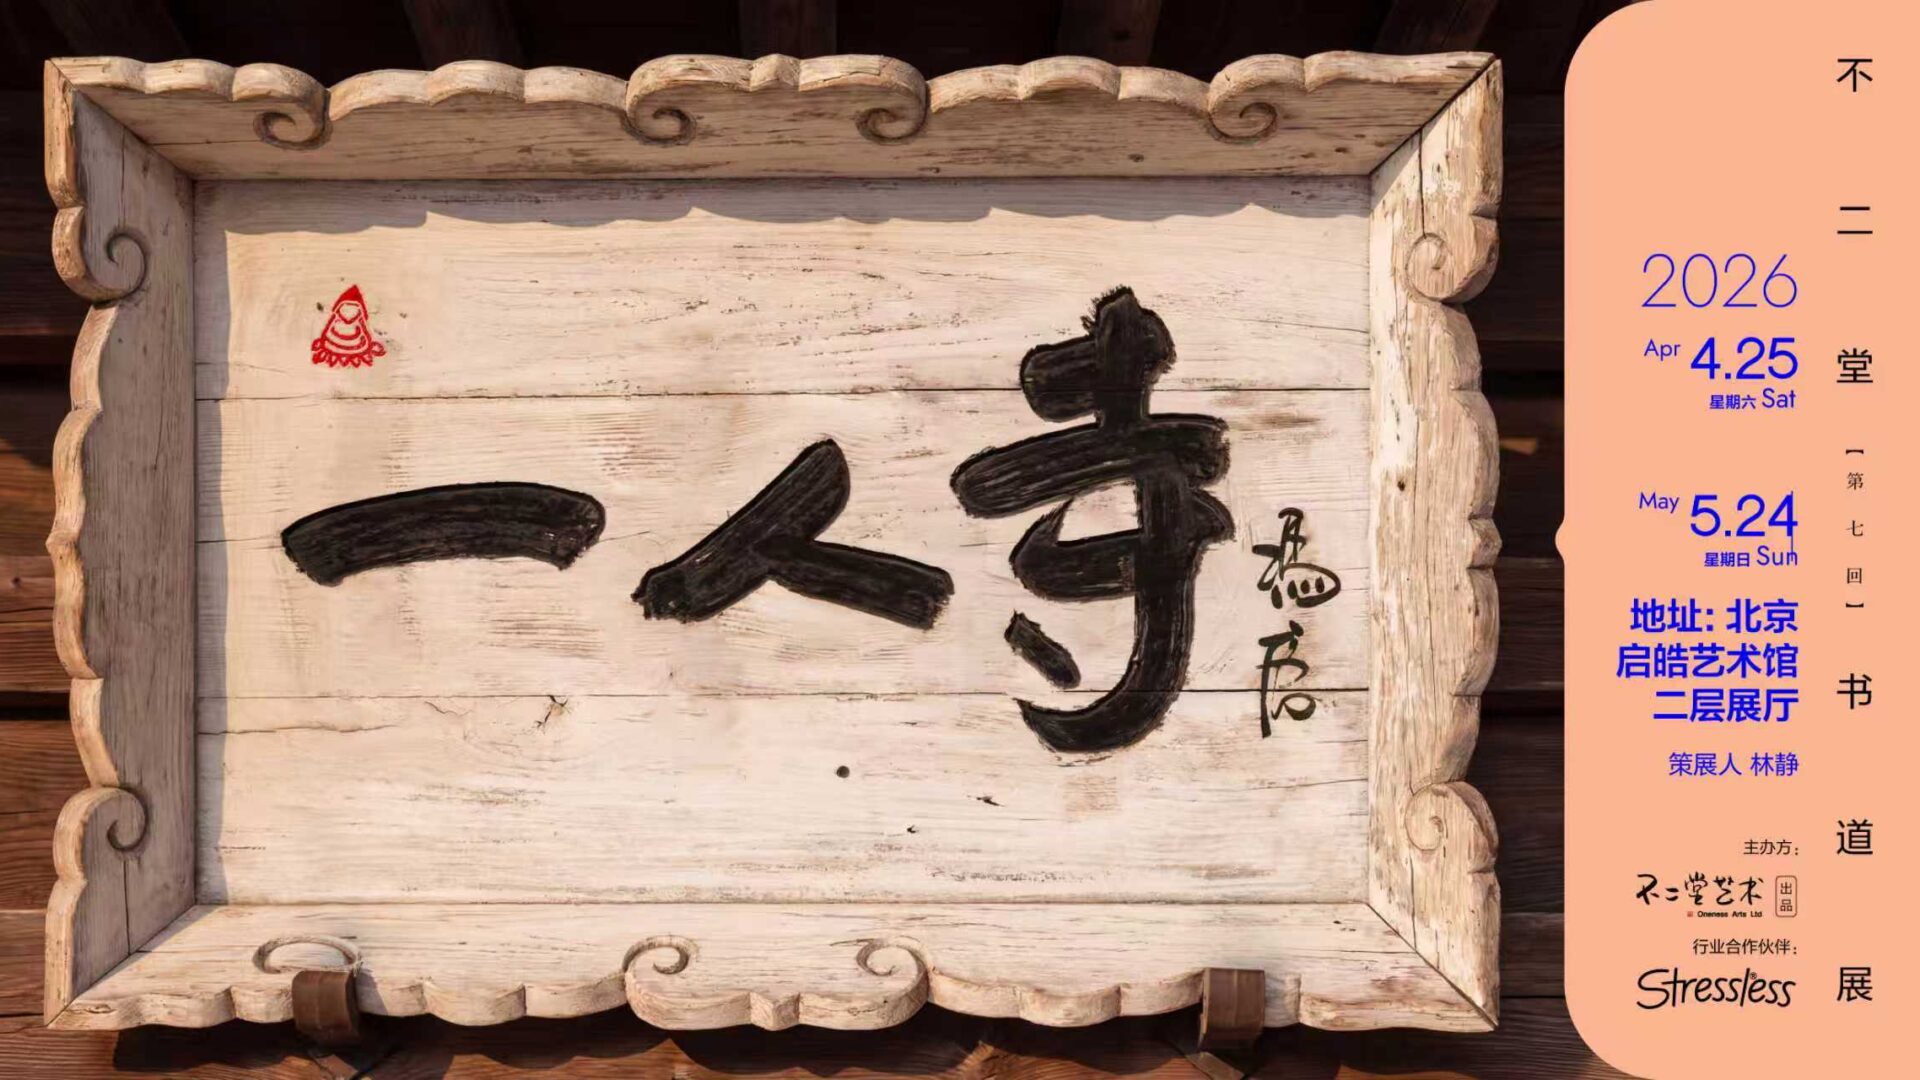 一人寺
不二堂【第七回】书道展
2026
Apr 4.25
星期六 Sat
May 5.24
星期日 Sun
地址：北京
启皓艺术馆
二层展厅
策展人 林静
主办方：
不二堂艺术 出品
Oneness Arts Ltd
行业合作伙伴：
Stressless®